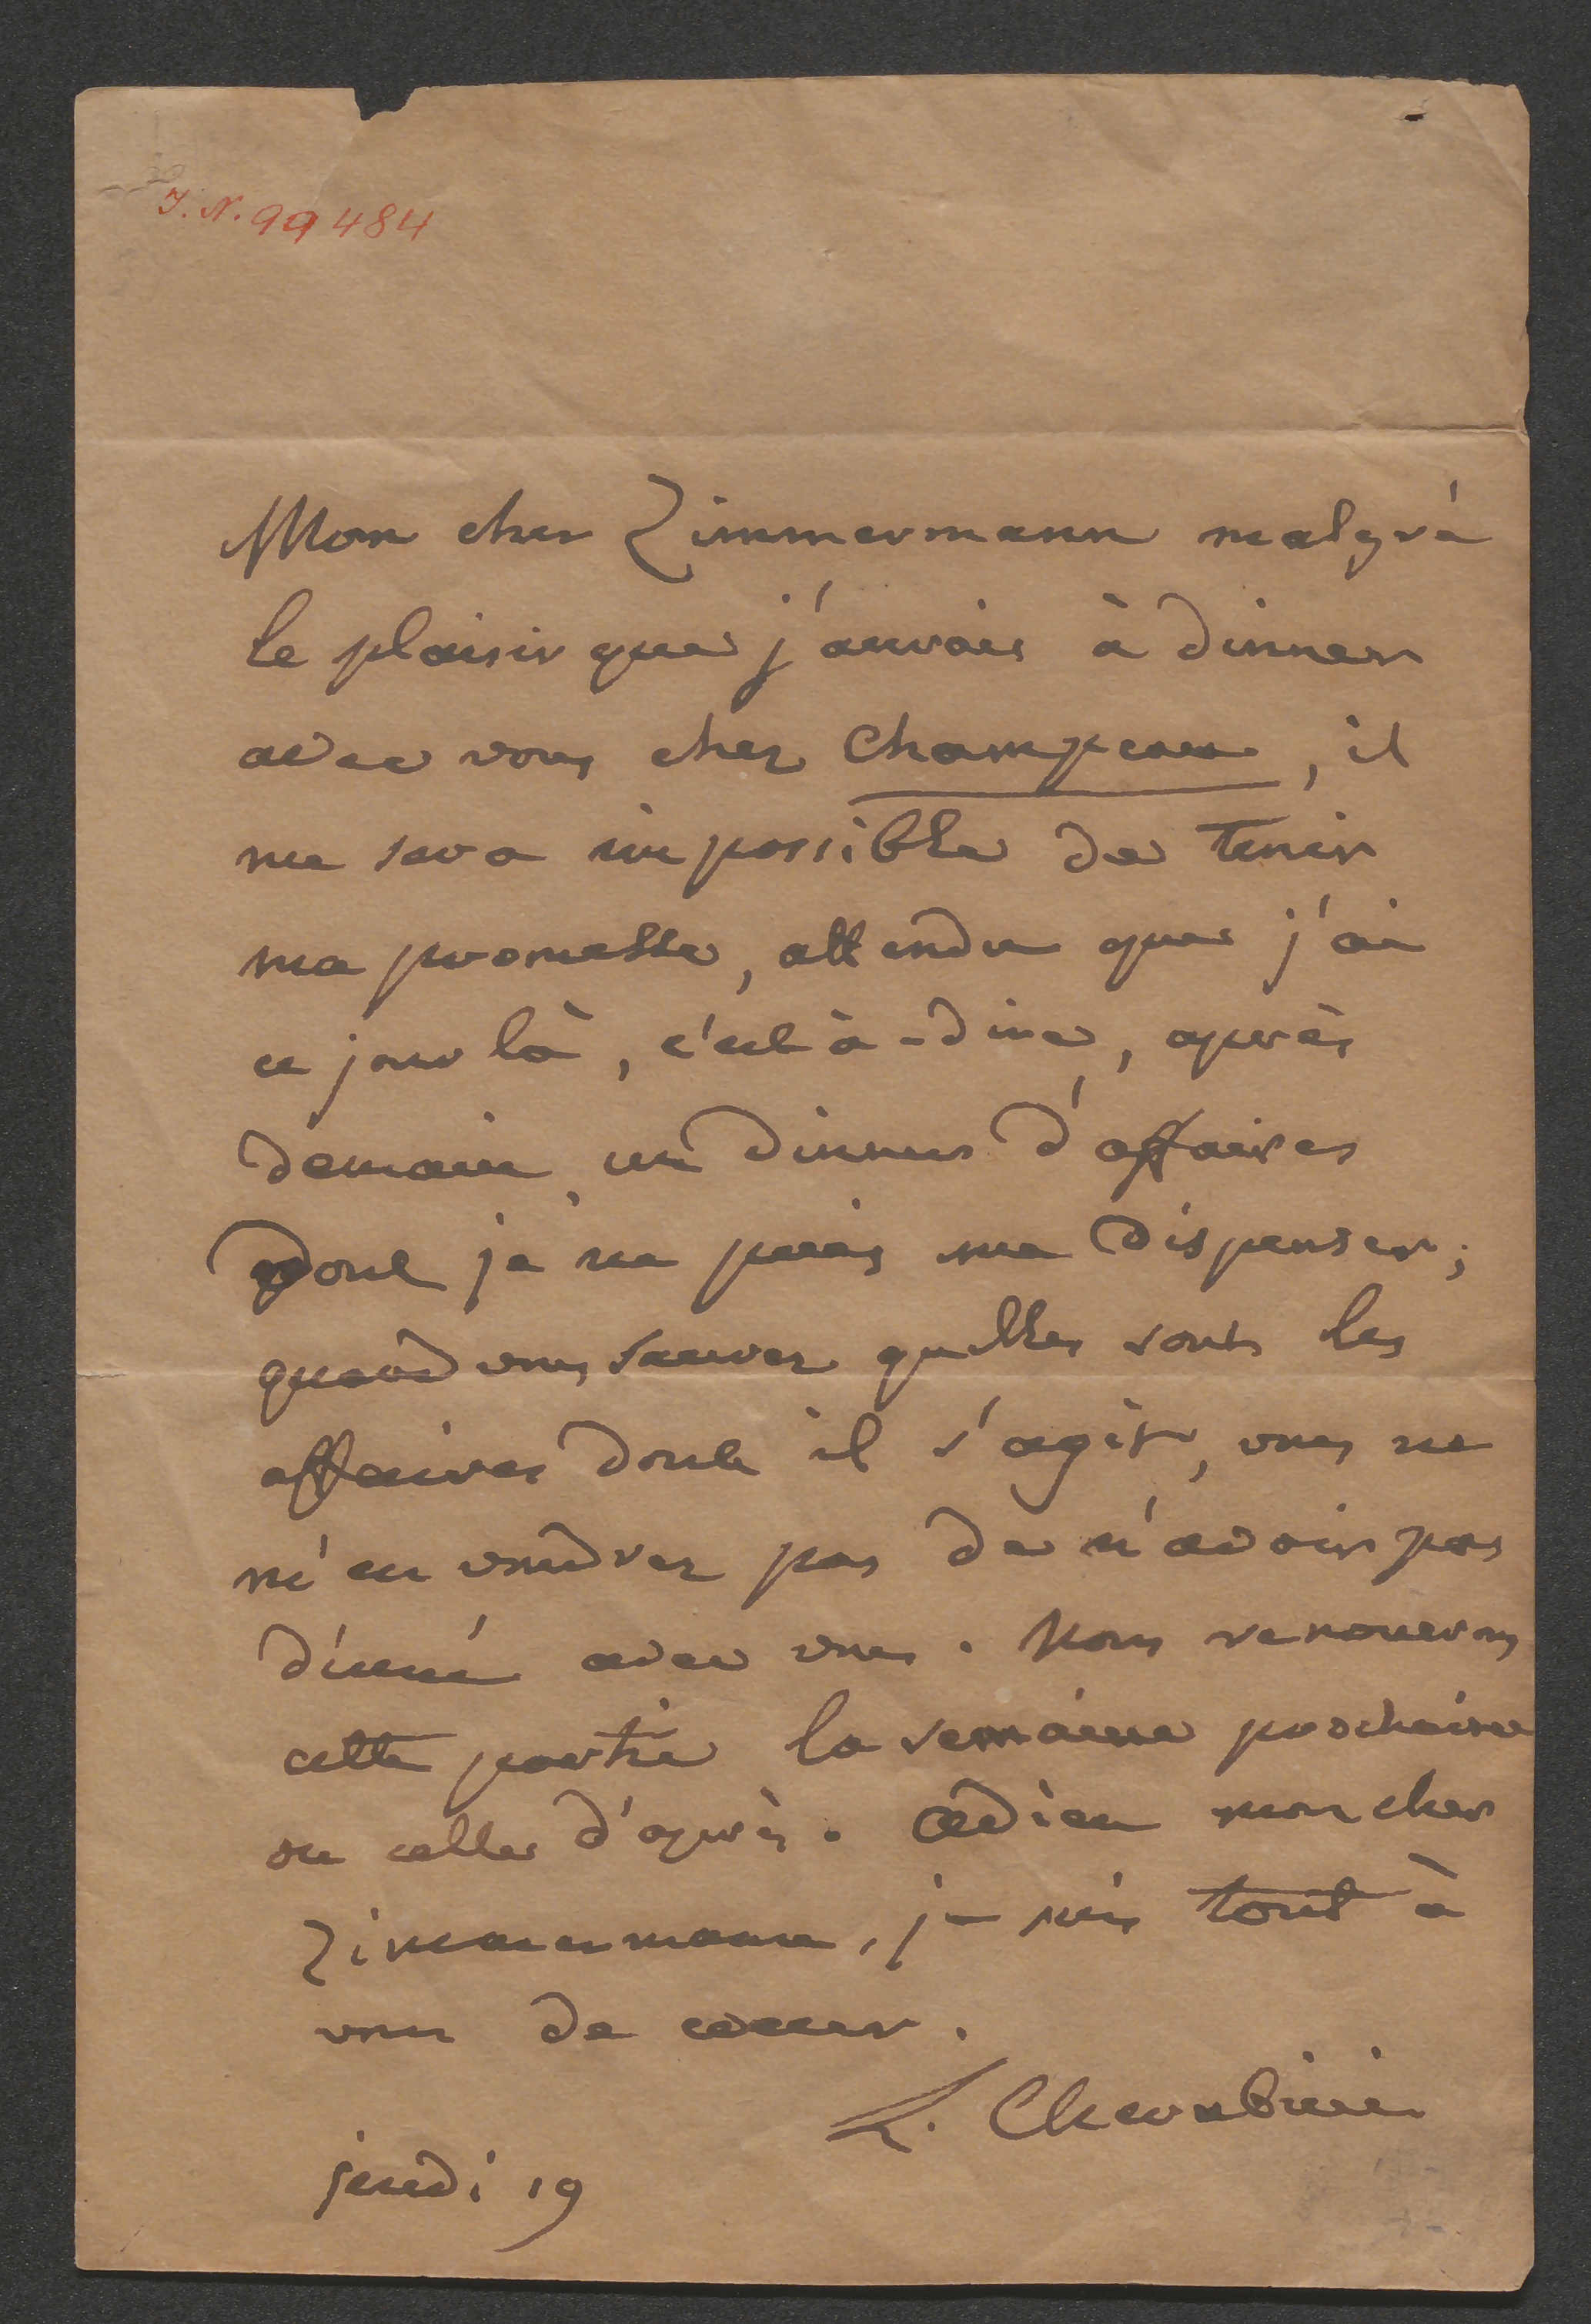 I. N. 99484
Mon cher Zimmermann malgré
le plaisir que j'aurais à dinner
avec vous chez Champeau, il
me sera impossible de tenir
ma promesse, attendu que j'ai
ce jour là, c'est à-dire, après
demain, un dinner d'affaires
dont je ne puis me dispenser;
quand vous saurez quelles sont les
affaires dont il s'agit, vous ne
m'en voudrez pas de n'avoir pas
dinné avec vous. Nous renouerons
cette partie la semaine prochaine
ou celle d'après. Adieu mon cher
Zimmermann, je suis tout à
vous de coeur.
L. Cherubini
jeudi 19